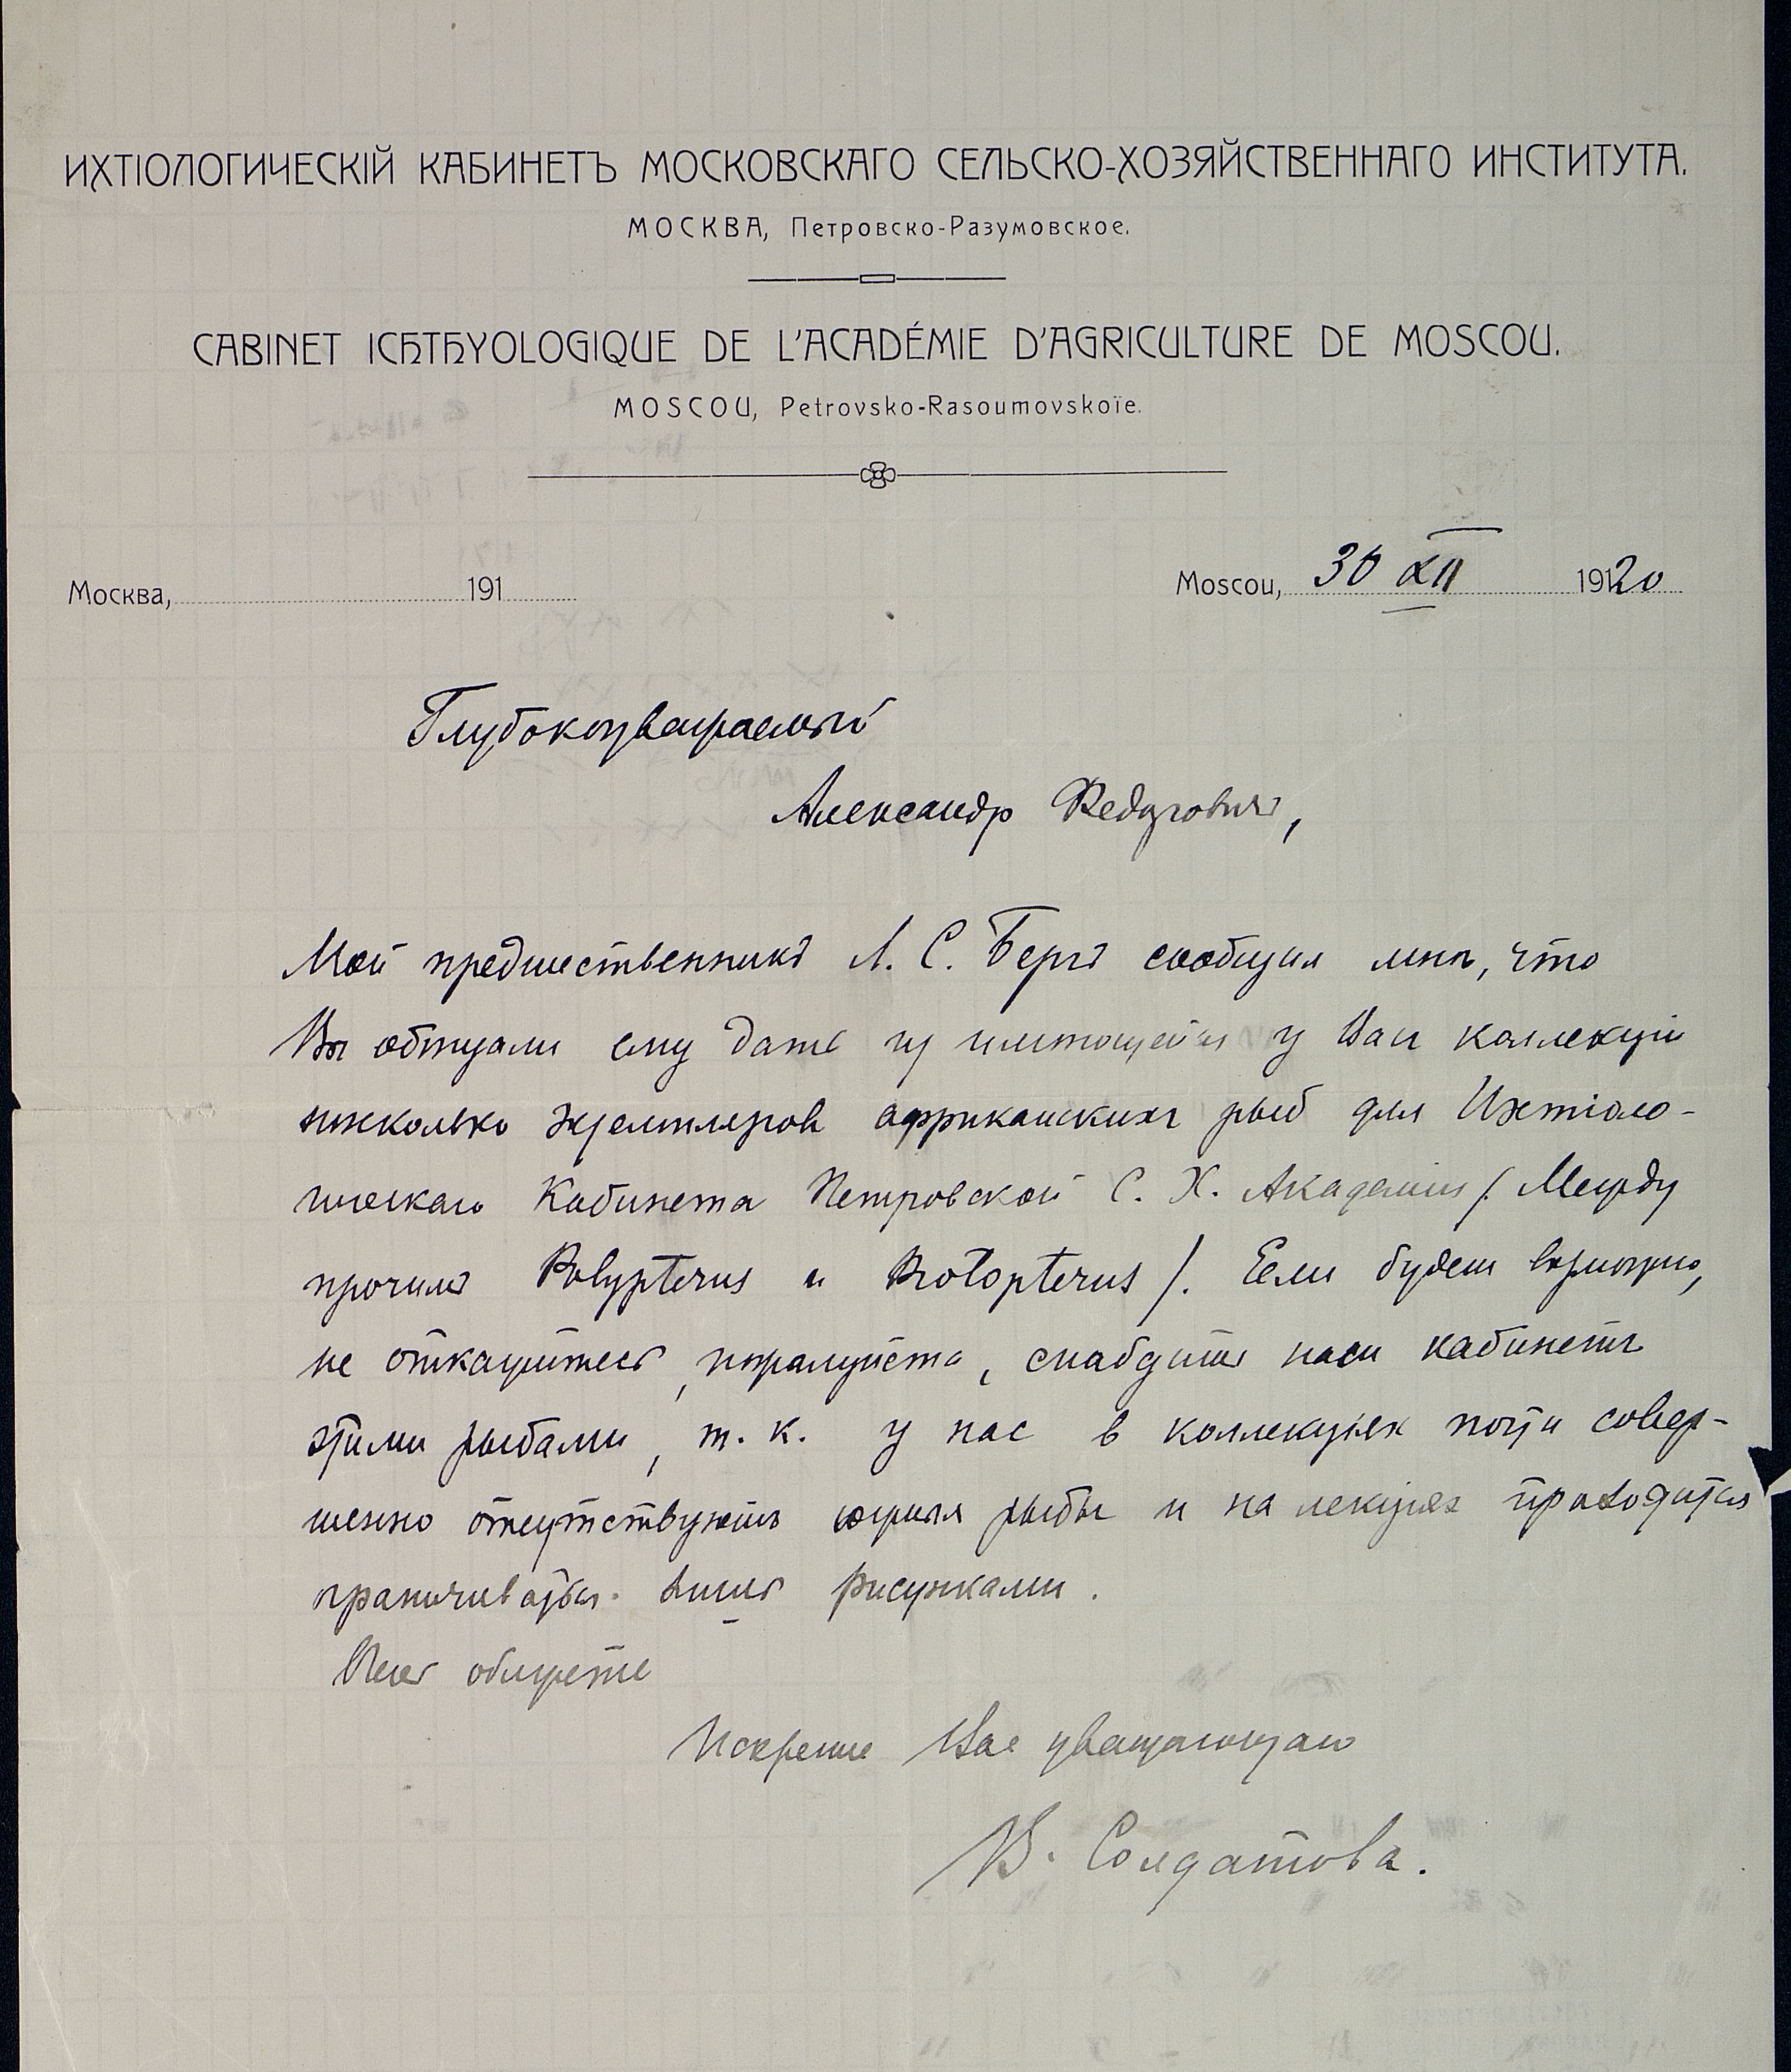 ИХТІОЛОГИЧЕСКІЙ КАБИНЕТЪ МОСКОВСКАГО СЕЛЬСКО-ХОЗЯЙСТВЕННАГО ИНСТИТУТА.
МОСКВА, Петровско-Разумовское.
CABINET ICHTHYOLOGIQUE DE L'ACADÉMIE D'AGRICULTURE DE MOSCOU.
MOSCOU, Petrovsko-Rasoumovskoïe.
Москва, 191 Moscou, 30 XII 1920
Глубокоуважаемый
Александр Федорович,
Мой предшественникъ Л. С. Бергъ сообщил мнѣ, что
Вы обѣщали ему дать из имѣющейся у Вас коллекціи
нѣсколько экземпляров африканских рыб для Ихтіоло-
гическаго Кабинета Петровской С. Х. Академіи /. Между
прочимъ Polypterus и Protopterus /. Если будет возможно,
не откажитесь, пожалуйста, снабдить наш кабинетъ
этими рыбами, т. к. у нас в коллекціях почти совер-
шенно отсутствуютъ рыбы и на лекціях приходится
ограничиваться лишь рисунками.
обяжете
Искренне Вас уважающаго
В. Солдатова.